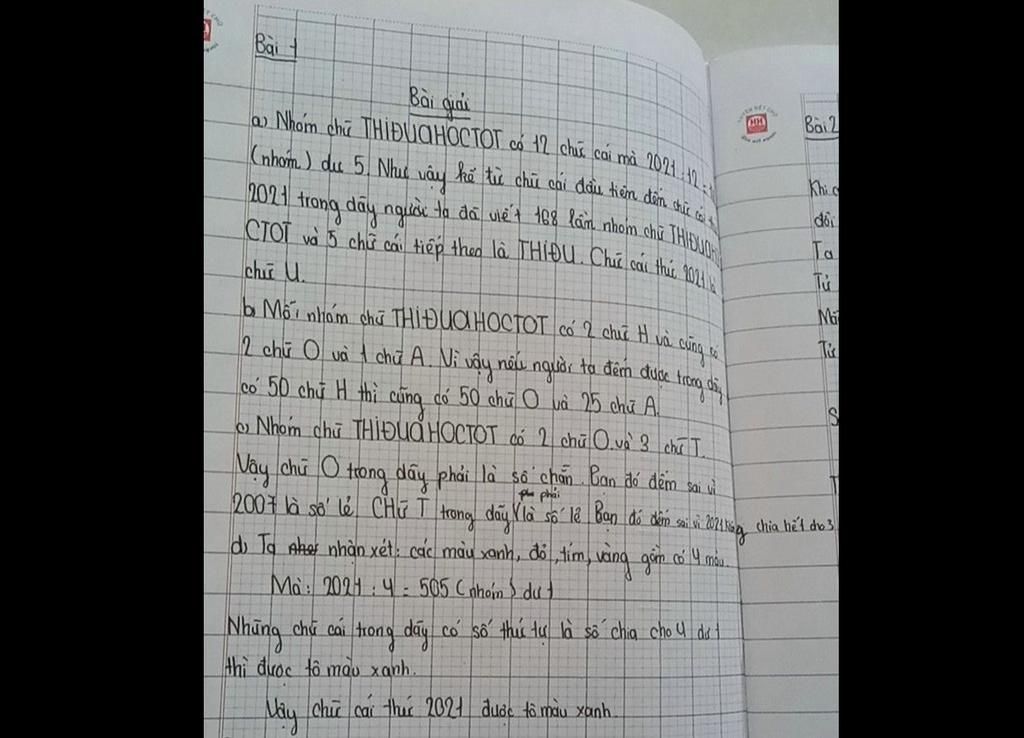 Bài 1
Bài giải
a) Nhóm chữ THIĐUAHOCTOT có 12 chữ cái mà 2021 : 12 =
(nhóm) dư 5. Như vậy kể từ chữ cái đầu tiên đến chữ cái
2021 trong dãy người ta đã viết 168 lần nhóm chữ THIĐUAHO
CTOT và 5 chữ cái tiếp theo là THIĐU. Chữ cái thứ 2021 là
chữ U.
b) Mỗi nhóm chữ THIĐUAHOCTOT có 2 chữ H và cũng có
2 chữ O và 1 chữ A. Vì vậy nếu người ta đếm được trong dãy
có 50 chữ H thì cũng có 50 chữ O và 25 chữ A.
c) Nhóm chữ THIĐUAHOCTOT có 2 chữ O và 3 chữ T.
Vậy chữ O trong dãy phải là số chẵn. Bạn đó đếm sai vì
phải
2007 là số lẻ. CHữ T trong dãy là số lẻ Bạn đó đếm sai vì 2021 không chia hết cho 3
d) Ta nhận xét: các màu xanh, đỏ, tím, vàng gồm có 4 màu.
Mà: 2021 : 4 = 505 (nhóm) dư 1
Những chữ cái trong dãy có số thứ tự là số chia cho 4 dư 1
thì được tô màu xanh.
Vậy chữ cái thứ 2021 được tô màu xanh.
HH
Bài 2
Khi
đổi
Ta
Từ
Từ
S
T